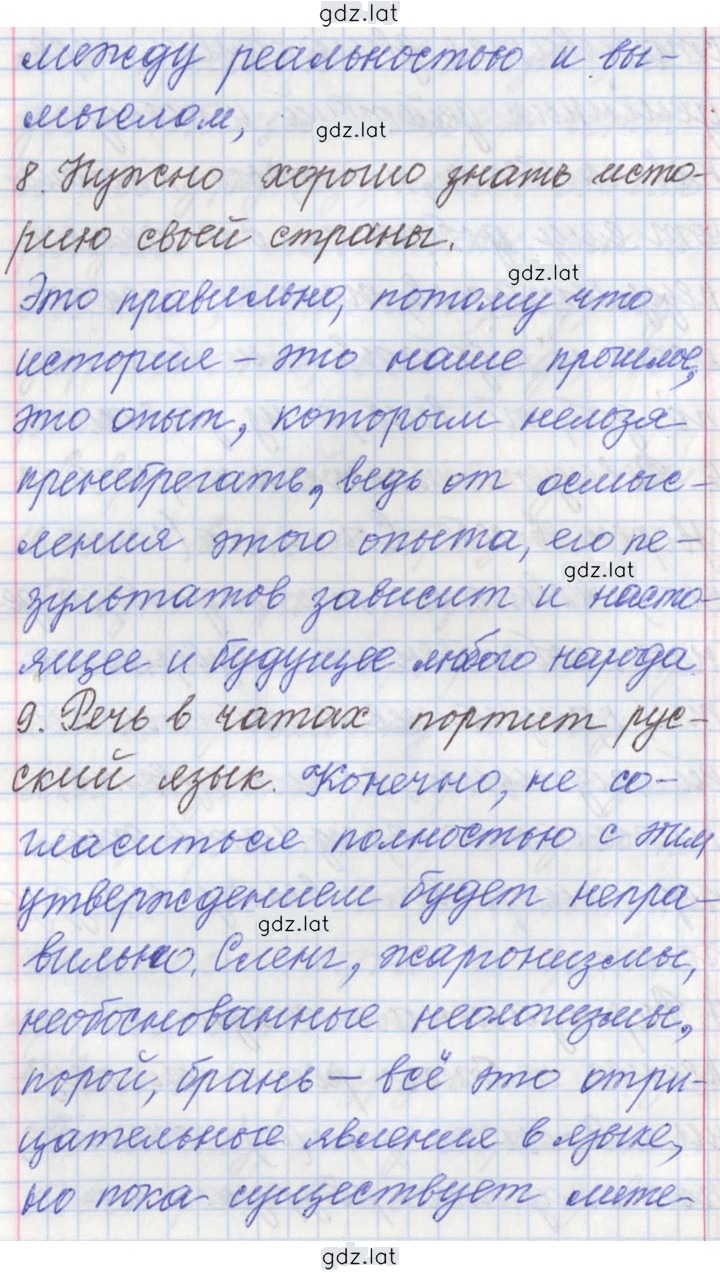 gdz.lat
между реальностью и вы-
мыслом,
gdz.lat
8. Нужно хорошо знать исто-
рию своей страны.
gdz.lat
Это правильно, потому что
история – это наше прошлое,
это опыт, которым нельзя
пренебрегать, ведь от осмыс-
ления этого опыта, его ре-
gdz.lat
зультатов зависит и насто-
ящее и будущее любого народа
9. Речь в чатах портит рус-
ский язык. Конечно, не со-
гласиться полностью с этим
утверждением будет непра-
gdz.lat
вильно. Сленг, жаргонизмы,
необоснованные неологизмы,
порой, брань – всё это отри-
цательные явления в языке,
но пока существует лите-
gdz.lat